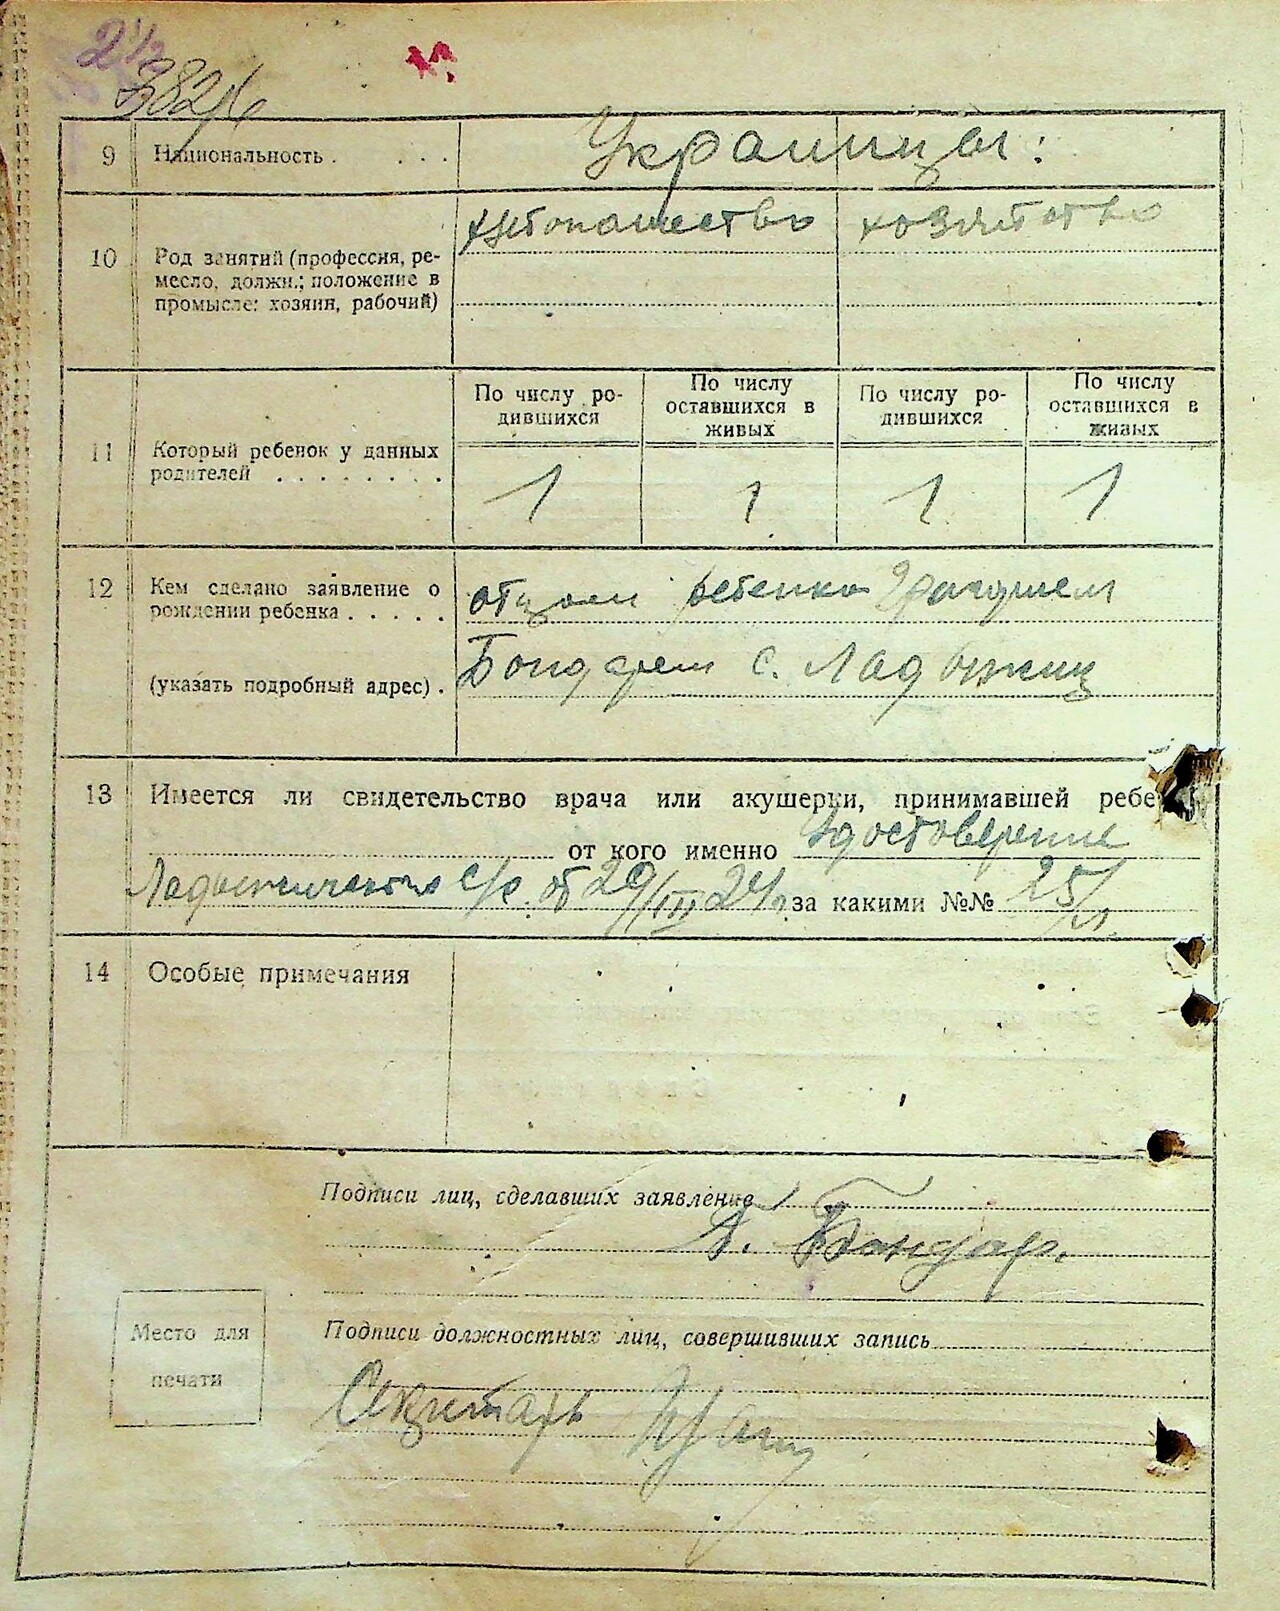 2 1/2
9 Национальность . . . . Украинцы:
хлебопашество хозяйство
10 Род занятий (профессия, ре-
месло, должн.; положение в
промысле: хозяин, рабочий)
По числу ро-
дившихся
По числу
оставшихся в
живых
По числу ро-
дившихся
По числу
оставшихся в
живых
11 Который ребенок у данных
родителей . . . . . . . .
1 1 1 1
12 Кем сделано заявление о
рождении ребенка . . . . .
отцом ребенка
(указать подробный адрес) .
Бондарем с. Ладыжиц
13 Имеется ли свидетельство врача или акушерки, принимавшей ребе
от кого именно удостоверение
Ладыжичского с/с. от 29/III 24г. за какими №№ 25
14 Особые примечания
Подписи лиц, сделавших заявление
Бондар.
Место для
печати
Подписи должностных лиц, совершивших запись
Секретарь